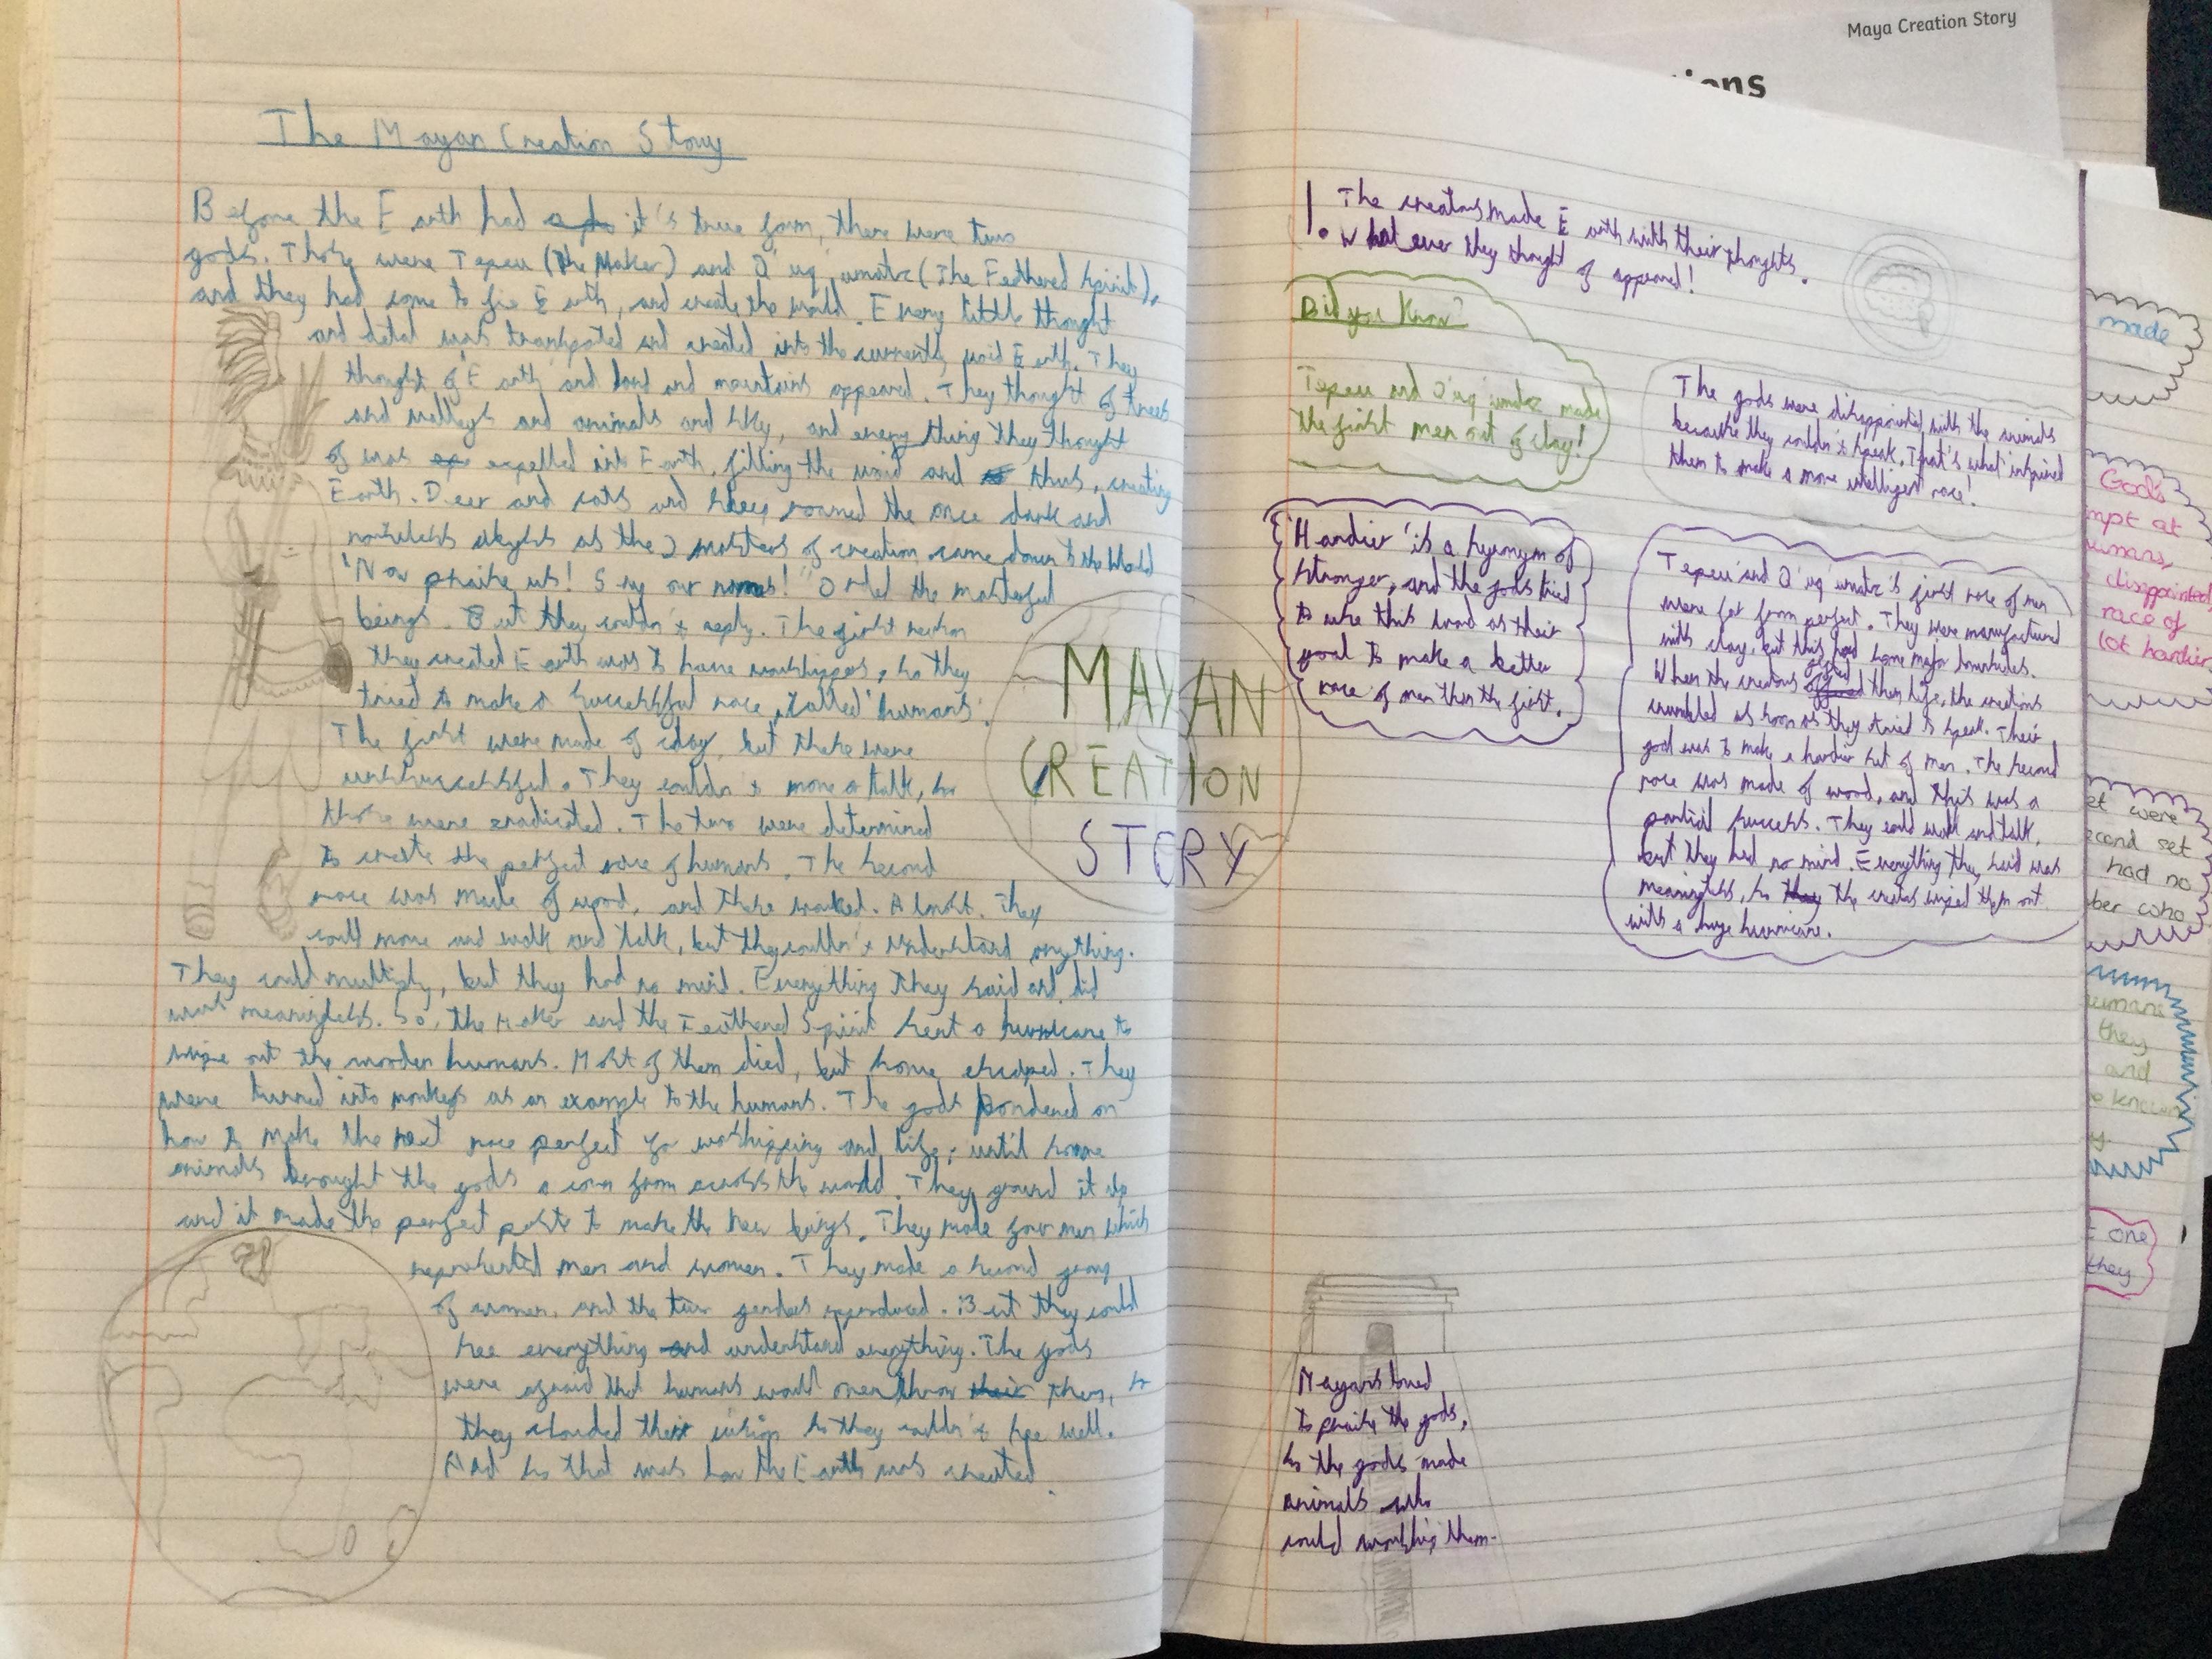 The Mayan Creation Story
Before the Earth had it's true form, there were two
gods. Those were Tepeu (The Maker) and Q'uq'umatz (The Feathered Spirit),
and they had come to fix Earth, and create the world. Every little thought
and detail was and created into the currently void Earth. They
thought of Earth and land and mountains appeared. They thought of trees
and valleys and animals and sky, and every thing they thought
of was expelled into Earth, filling the void and thus, creating
Earth. Deer and cats and roamed the once dark and
as the 2 masters of creation came down to the World
'Now praise us! Say our names!' Orded the masterful
beings. But they couldn't reply. The first reason
they created Earth was to have worshippers, so they
tried to make a successful race, called 'humans'.
The first were made of clay, but these were
unsuccessful. They couldn't move or talk, so
those were eradicated. The two were determined
to create the perfect race of humans. The second
race was made of wood, and these worked. Almost. They
could move and walk and talk, but they couldn't understand anything.
They could multiply, but they had no mind. Everything they said and did
was meaningless. So, the Maker and the Feathered Spirit sent a hurricane to
wipe out the wooden humans. Most of them died, but some escaped. They
were turned into monkeys as an example to the humans. The gods pondered on
how to make the next race perfect for worshipping and life, until some
animals brought the gods a corn from across the world. They ground it up
and it made the perfect paste to make the new beings. They made four men which
represented men and women. They made a second group
of women, and the two genders reproduced. But they could
see everything and understand everything. The gods
were afraid that humans would over throw their them, so
they clouded their vision so they couldn't see well.
And so that was how the Earth was created.
MAYAN
CREATION
STORY
Maya Creation Story
ions
! The creators made Earth with their thoughts.
What ever they thought of appeared!
Did you Know?
Tepeu and Q'uq'umatz made
the first men out of clay!
The gods were disappointed with the animals
because they couldn't speak. That's what inspired
them to make a more intelligent race!
'Hardier' is a synonym of
stronger, and the gods tried
to use this word as their
goal to make a better
race of men then the first.
Tepeu and Q'uq'umatz's first race of men
were far from perfect. They were manufactured
with clay, but this had some major downsides.
When the creators offered them life, the creations
crumbled as soon as they tried to speak. Their
goal was to make a hardier set of men. The second
race was made of wood, and this was a
partial success. They could walk and talk,
but they had no mind. Everything they said was
meaningless, so they the creators wiped them out
with a huge hurricane.
Mayans loved
to praise the gods,
so the gods made
animals who
could worship them.
made
Gods
mpt at
umans,
disappointed
race of
lot hardier
et were
econd set
had no
ber who
umans
they
and
known
y
one
they